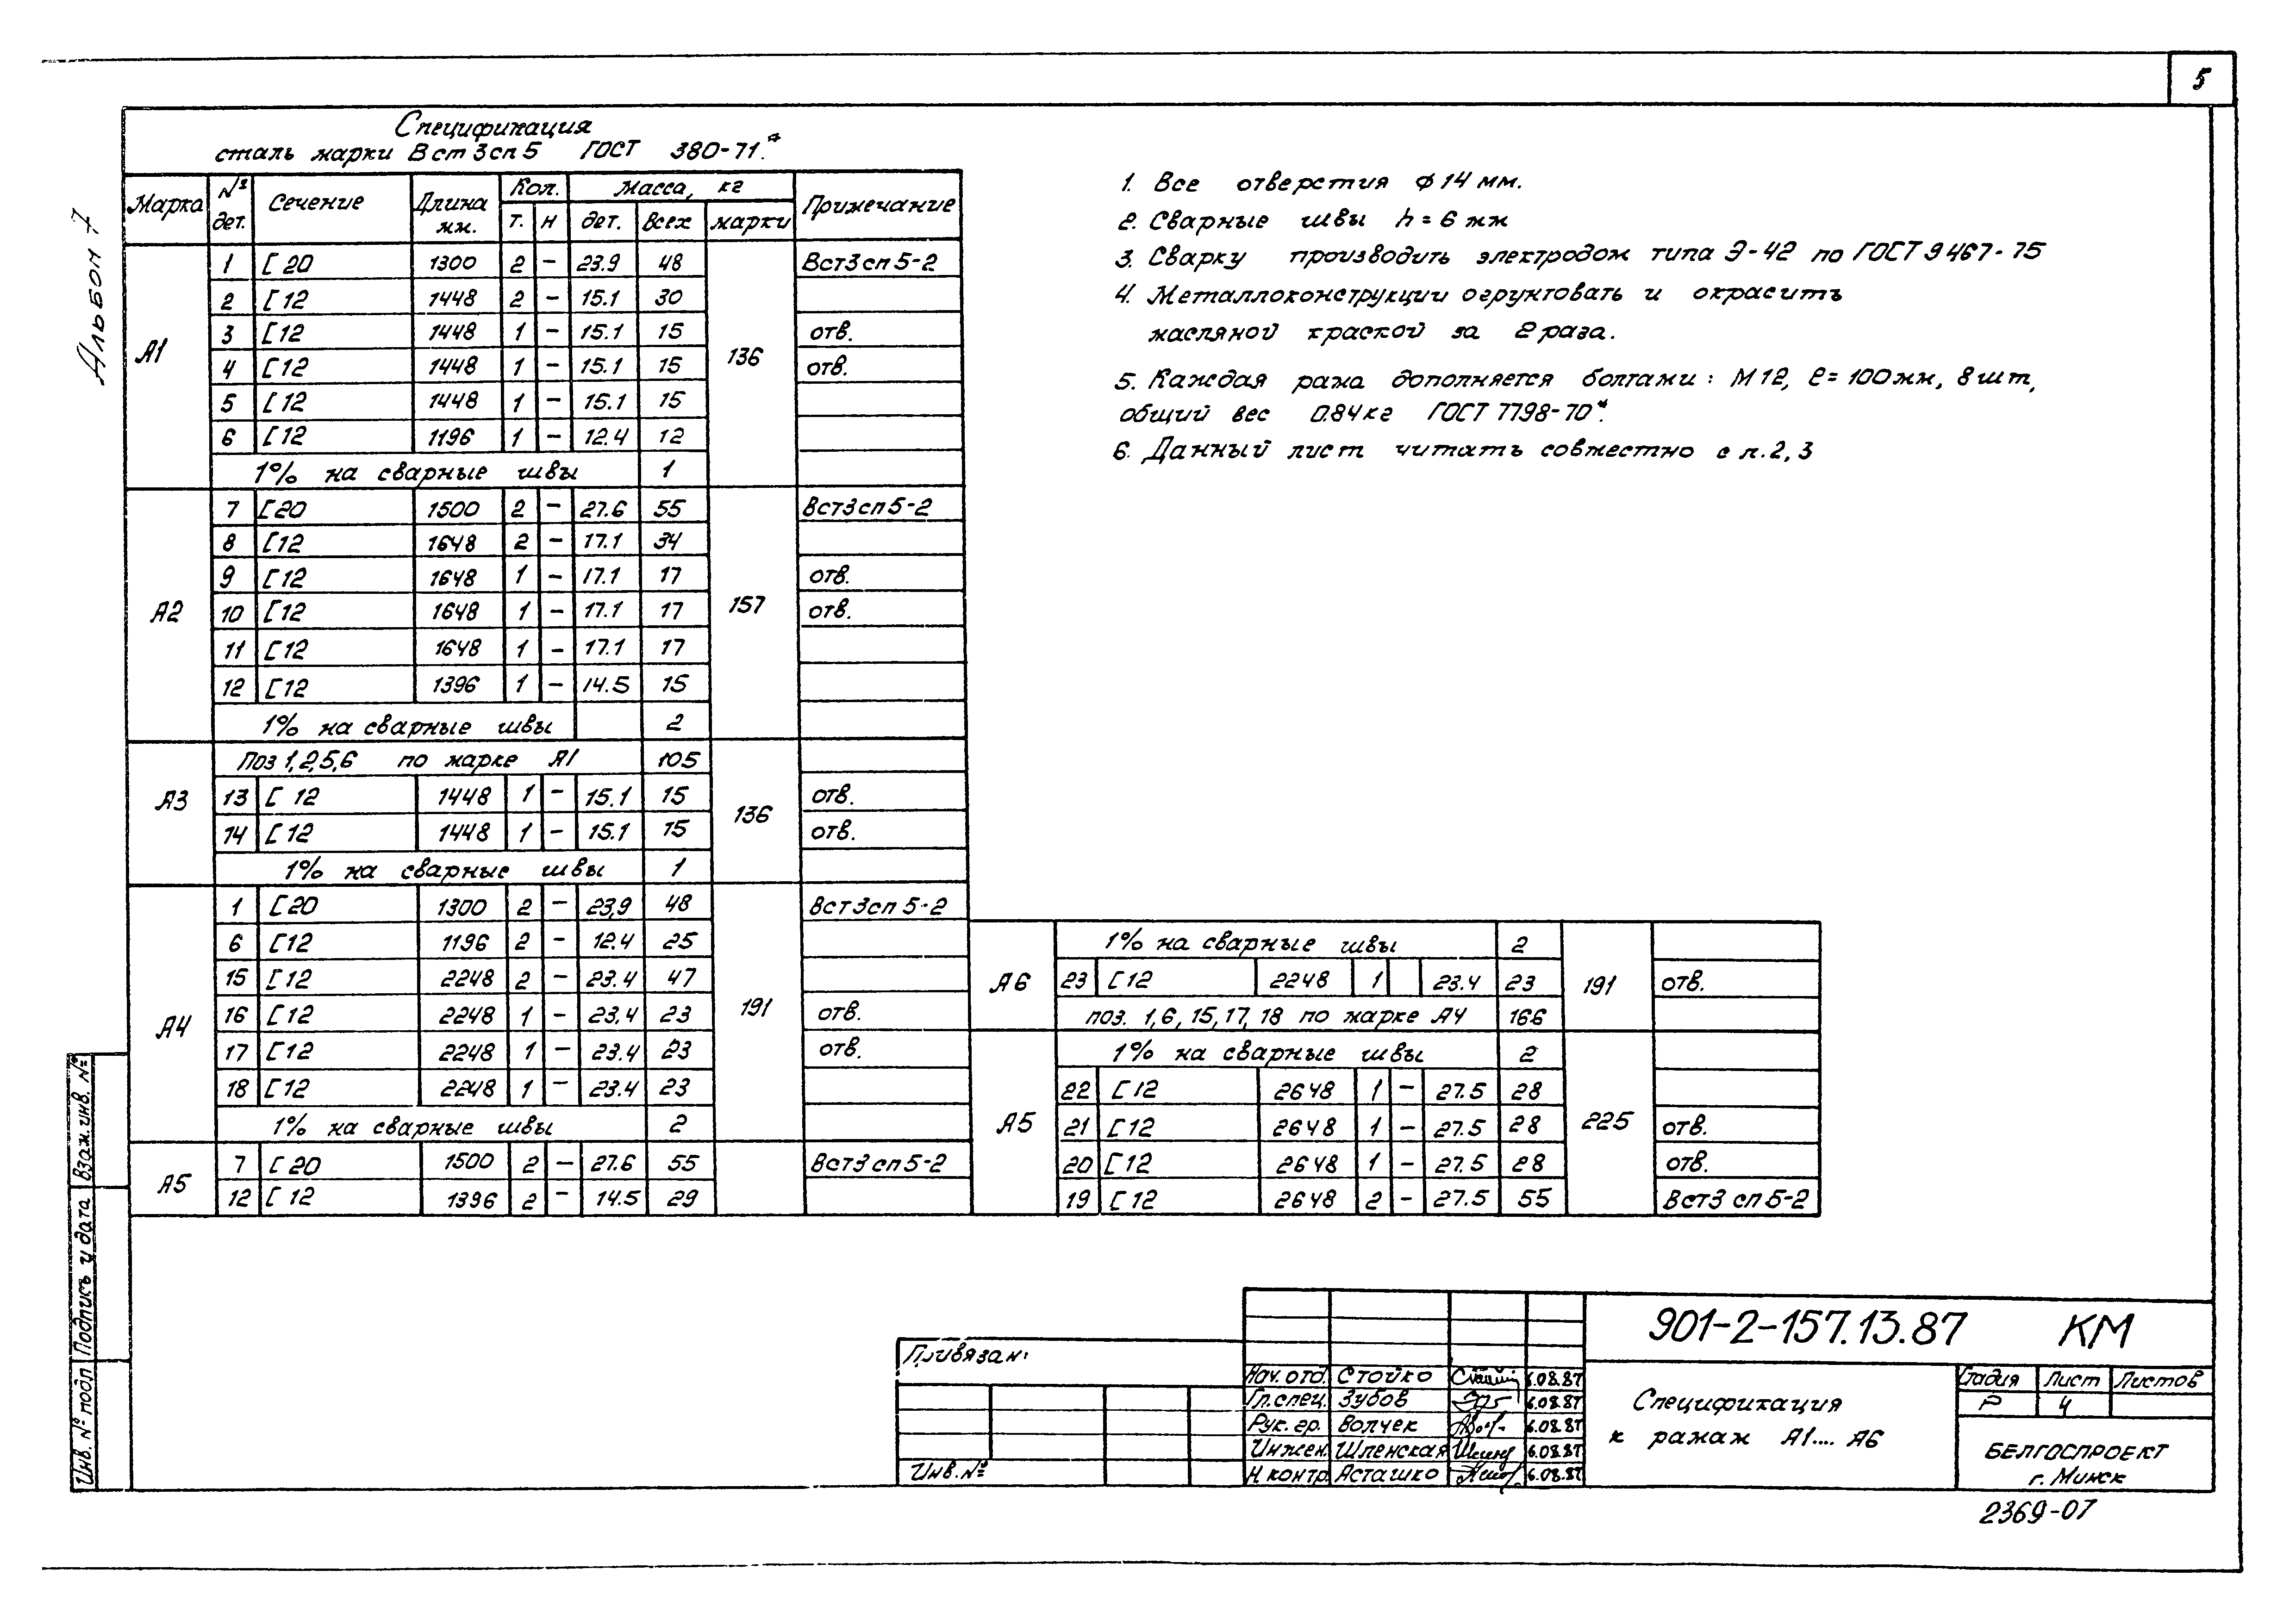 5
Альбом 7
Спецификация
сталь марки Вст3сп5 ГОСТ 380-71.*
Марка № дет. Сечение Длина мм. Кол. Масса, кг Примечание
т. н дет. всех марки
А1
1 [ 20 1300 2 – 23.9 48 Вст3сп5-2
2 [ 12 1448 2 – 15.1 30
3 [ 12 1448 1 – 15.1 15 отв.
4 [ 12 1448 1 – 15.1 15 136 отв.
5 [ 12 1448 1 – 15.1 15
6 [ 12 1196 1 – 12.4 12
1% на сварные швы 1
А2
7 [ 20 1500 2 – 27.6 55 Вст3сп5-2
8 [ 12 1648 2 – 17.1 34
9 [ 12 1648 1 – 17.1 17 отв.
10 [ 12 1648 1 – 17.1 17 157 отв.
11 [ 12 1648 1 – 17.1 17
12 [ 12 1396 1 – 14.5 15
1% на сварные швы 2
А3
Поз 1,2,5,6 по марке А1 105
13 [ 12 1448 1 – 15.1 15 136 отв.
14 [ 12 1448 1 – 15.1 15 отв.
1% на сварные швы 1
А4
1 [ 20 1300 2 – 23,9 48 Вст3сп5-2
6 [ 12 1196 2 – 12.4 25
15 [ 12 2248 2 – 23.4 47
16 [ 12 2248 1 – 23.4 23 191 отв.
17 [ 12 2248 1 – 23.4 23 отв.
18 [ 12 2248 1 – 23.4 23
1% на сварные швы 2
А5
7 [ 20 1500 2 – 27.6 55 Вст3сп5-2
12 [ 12 1396 2 – 14.5 29
1. Все отверстия ф 14 мм.
2. Сварные швы h = 6 мм
3. Сварку производить электродом типа Э-42 по ГОСТ 9467-75
4. Металлоконструкции огрунтовать и окрасить
масляной краской за 2 раза.
5. Каждая рама дополняется болтами: М12, ℓ=100мм, 8шт,
общий вес 0.84кг ГОСТ 7798-70*.
6. Данный лист читать совместно с л.2,3
А6
1% на сварные швы 2
23 [ 12 2248 1 23.4 23 191 отв.
поз. 1,6,15,17,18 по марке А4 166
А5
1% на сварные швы 2
22 [ 12 2648 1 – 27.5 28
21 [ 12 2648 1 – 27.5 28 225 отв.
20 [ 12 2648 1 – 27.5 28 отв.
19 [ 12 2648 2 – 27.5 55 Вст3сп5-2
Инв. № подл Подпись и дата Взам.инв. №
Привязан:
Инв. №
Нач. отд. Стойко 6.08.87
Гл.спец. Зубов 6.08.87
Рук. гр. Волчек 6.08.87
Инжен. Шленская 6.08.87
Н контр. Асташко 6.08.87
901-2-157.13.87 КМ
Спецификация
к рамам А1.... А6
Стадия Лист Листов
Р 4
БЕЛГОСПРОЕКТ
г. Минск
2369-07